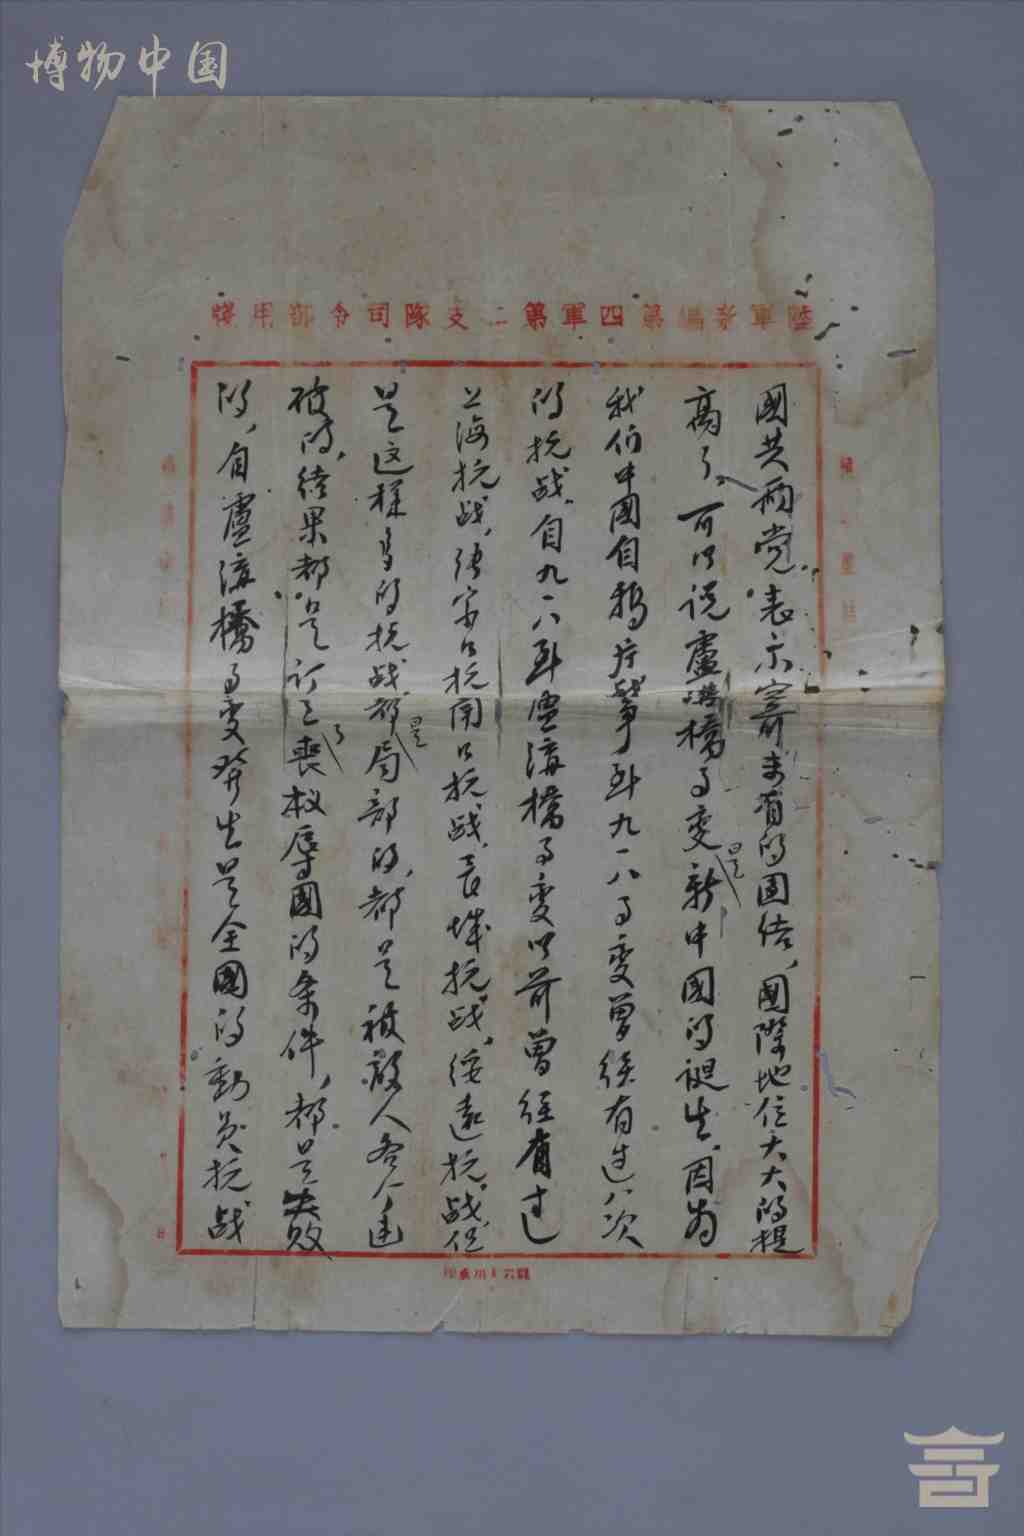 博物中国
陸軍新編第四軍第二支隊司令部用牋
國共兩党表示空前未有的团结，國際地位大大的提
高了，可以说盧溝橋事变是新中國的诞生，因为
我们中國自鸦片战争到九一八事变曾经有过八次
的抗战，自九一八到盧溝橋事变以前曾经有过
上海抗战，张家口抗战，長城抗战，绥遠抗战，但
是这样多的抗战都是局部的，都是被敌人各个击
破的，结果都是订立了丧权辱國的条件，都是失败
的，自盧溝橋事变发生是全國的動员抗战